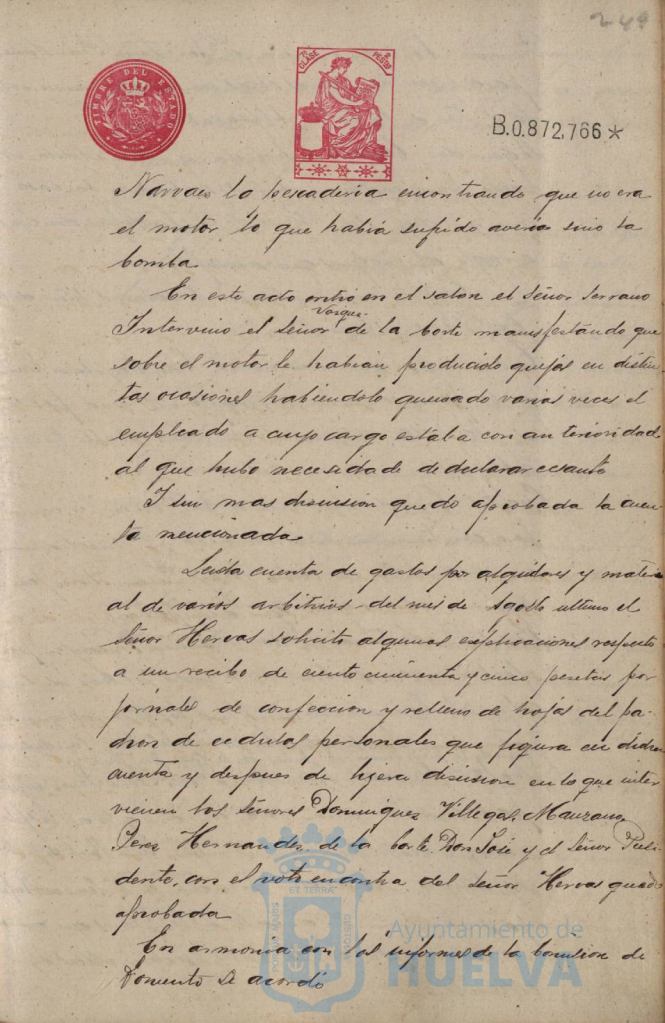 249
TIMBRE DEL ESTADO
7ª CLASE
B.0.872,766*
Narvaes la pescaderia encontrando que no era
el motor lo que habia sufrido averias sino la
bomba
En este acto entró en el salon el Señor Serrano
Vasquez
Intervino el Señor de la Corte manifestando que
sobre el motor le habian producido quejas en distin-
tas ocasiones habiendolo quemado varias veces el
empleado a cuyo cargo estaba con anterioridad
al que hubo necesidad de declarar cesante
I sin mas discusion quedó aprobada la cuen-
ta mencionada
Leida cuenta de gastos por alquileres y materi-
al de varios arbitrios del mes de Agosto ultimo el
Señor Hervas solicitó algunas esplicaciones respecto
a un recibo de ciento cincuenta y cinco pesetas por
jornales de confeccion y relleno de hojas del pa-
dron de cedulas personales que figura en dicha
cuenta y despues de lijera discusion en la que inter-
vienen los señores Dominguez Villegas, Manzano,
Perez Hernandez, de la Corte Don José y el Señor Presi-
dente, con el voto en contra del Señor Hervas quedó
aprobada
En armonia con los informes de la Comision de
Fomento se acordó
Ayuntamiento de
HUELVA